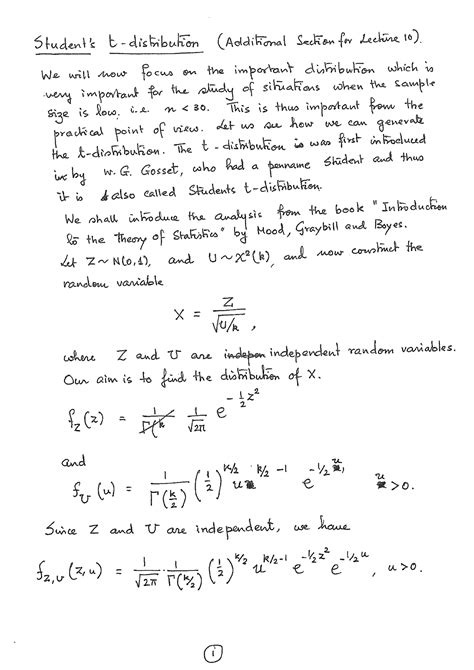 Student's t-distribution (Additional Section for Lecture 10).
We will now focus on the important distribution which is
very important for the study of situations when the sample
size is low, i.e. n < 30. This is thus important from the
practical point of view. Let us see how we can generate
the t-distribution. The t-distribution is was first introduced
by W. G. Gosset, who had a penname Student and thus
it is also called Students t-distribution.
We shall introduce the analysis from the book "Introduction
to the Theory of Statistics" by Mood, Graybill and Boyes.
Let Z ~ N(0,1), and U ~ χ²(k), and now construct the
random variable
X = Z / √(U/k) ,
where Z and U are indepen independent random variables.
Our aim is to find the distribution of X.
f_Z(z) = 1/Γ(k 1/√2π e^(-½z²)
and
f_U(u) = 1/Γ(k/2) (1/2)^(k/2) u^(k/2-1) e^(-½u), u > 0.
Since Z and U are independent, we have
f_Z,U(z,u) = 1/√2π · 1/Γ(k/2) (1/2)^(k/2) u^(k/2-1) e^(-½z²) e^(-½u), u > 0.
i